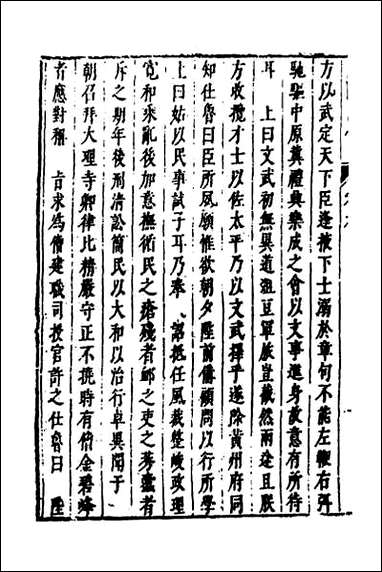 方以武定天下臣逢掖下士溺於章句不能左鞬右弭
馳驅中原冀禮與樂成之會以文事進身故意有所待
耳　上曰文武初無異道俎豆軍旅豈截然兩途且朕
方收攬才士以佐太平乃以文武擇乎遂除黃州府同
知仕魯曰臣所夙願惟欲朝夕陛前備顧問以行所學
上曰姑以民事試子耳乃奉　詔抵任風裁整峻政理
寬和乘亂後加意撫循民之瘡殘者卹之吏之莠蠹者
斥之期年後刑清訟簡民以大和以治行卓異聞于
朝召拜大理寺卿律比精嚴守正不撓時有僧金碧峰
者應對稱　旨求為僧建職司授官許之仕魯曰　陛